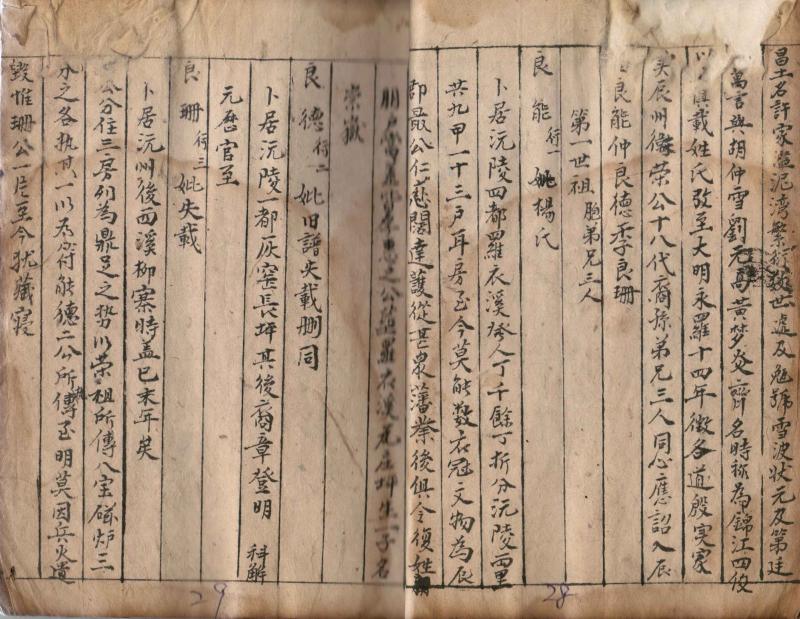 昌士名許家溢泥湾繁衍数世遞及勉號雪波狀元及第廷
萬言與胡仲雪劉元高黃梦炎齊名時称為錦江四俊
載姓氏攷至大明永羅十四年徵各道殷实家
实辰州衛荣公十八代裔孫弟兄三人同心應詔入辰
良能仲良德季良珊
第一世祖 胞弟兄三人
良能 行一 妣楊氏
卜居沅陵四都羅衣溪癸人丁千餘丁折分沅陵西里
共九甲一十三户耳房至今莫能数衣冠文物為辰
郡最公仁慈闊達護從甚衆藩業後俱令復姓
之公羅衣溪坪生一子名
崇嶽
良德 行二 妣旧譜失載删同
卜居沅陵一都灰窯長坪其後裔章登明 科解
元歷官至
良珊 行三 妣失載
卜居沅州後西溪柳寨時盖已末年矣
公分住三房列為鼎足之势以荣祖所傳八宝磁炉三
分之各执其一以為符能德二公所傳至明莫因兵火遺
毀惟珊公一片至今犹藏寝
29
28